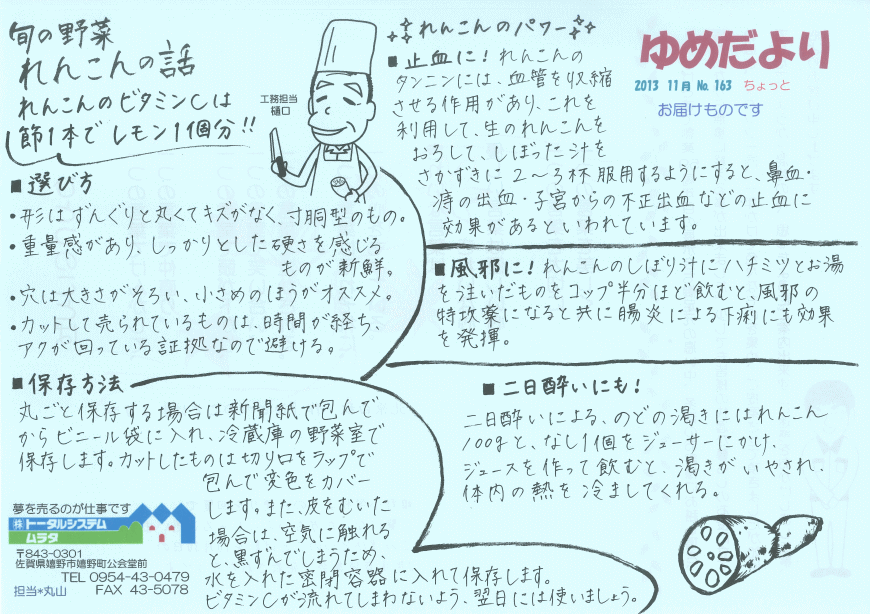 旬の野菜
れんこんの話
れんこんのビタミンCは
節1本でレモン1個分!!
工務担当
樋口
■選び方
・形はずんぐりと丸くてキズがなく、寸胴型のもの。
・重量感があり、しっかりとした硬さを感じる
ものが新鮮。
・穴は大きさがそろい、小さめのほうがオススメ。
・カットして売られているものは、時間が経ち、
アクが回っている証拠なので避ける。
■保存方法
丸ごと保存する場合は新聞紙で包んで
からビニール袋に入れ、冷蔵庫の野菜室で
保存します。カットしたものは切り口をラップで
包んで変色をカバー
します。また、皮をむいた
場合は、空気に触れる
と、黒ずんでしまうため、
水を入れた密閉容器に入れて保存します。
ビタミンCが流れてしまわないよう、翌日には使いましょう。
夢を売るのが仕事です
㈱トータルシステム
ムラタ
〒843-0301
佐賀県嬉野市嬉野町公会堂前
TEL 0954-43-0479
担当*丸山 FAX 43-5078
れんこんのパワー
■止血に!れんこんの
タンニンには、血管を収縮
させる作用があり、これを
利用して、生のれんこんを
おろして、しぼった汁を
さかずきに2〜3杯服用するようにすると、鼻血・
痔の出血・子宮からの不正出血などの止血に
効果があるといわれています。
■風邪に!れんこんのしぼり汁にハチミツとお湯
を注いだものをコップ半分ほど飲むと、風邪の
特攻薬になると共に腸炎による下痢にも効果
を発揮。
■二日酔いにも!
二日酔いによる、のどの渇きにはれんこん
100gと、なし1個をジューサーにかけ、
ジュースを作って飲むと、渇きがいやされ、
体内の熱を冷ましてくれる。
ゆめだより
2013 11月 No. 163 ちょっと
お届けものです